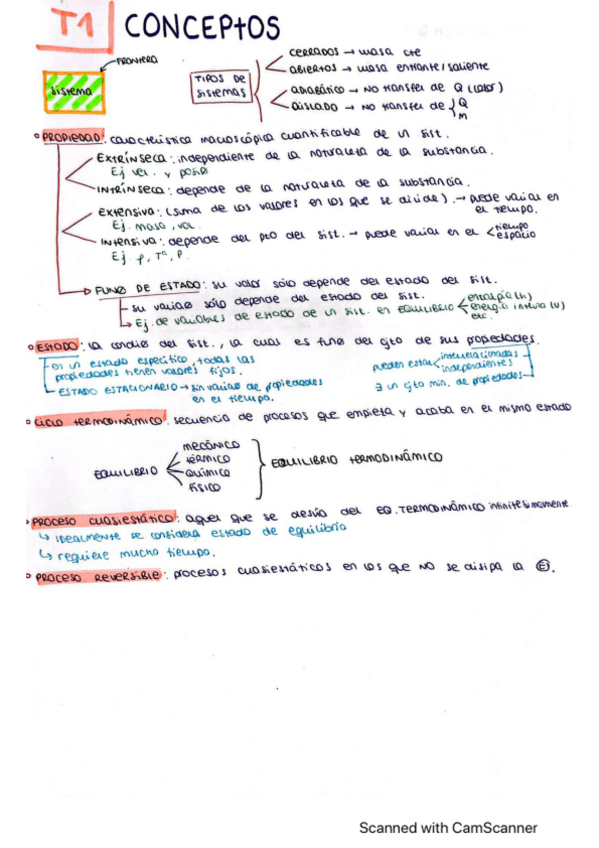 T1 CONCEPtOS
FRONTERA
sistema
TIPOS DE SISTEMAS
CERRADOS → masa cte
ABIERTOS → masa entrante/saliente
ADIABÁTICO → NO transfer de Q (calor)
AISLADO → NO transfer de { Q
M
PROPIEDAD: característica macroscópica cuantificable de un sist.
EXTRÍNSECA: independiente de la naturaleza de la substancia.
Ej vel. y posiº
INTRÍNSECA: depende de la naturaleza de la substancia.
EXTENSIVA: (suma de los valores en los que se divide). → puede variar en el tiempo.
Ej. masa, vol.
INTENSIVA: depende del pto del sist. → puede variar en el < tiempo
espacio
Ej. ρ, Tª, P.
FUNº DE ESTADO: su valor sólo depende del estado del sist.
su variaº sólo depende del estado del sist.
Ej. de variables de estado de un sist. en EQUILIBRIO < entalpía (h)
energía interna (U)
etc.
ESTADO: la condiº del sist., la cual es funº del cjto de sus propiedades.
en un estado específico, todas las propiedades tienen valores fijos.
pueden estar < interrelacionadas
independientes
ESTADO ESTACIONARIO → sin variaº de propiedades en el tiempo.
∃ un cjto min. de propiedades
CICLO TERMODINÁMICO: secuencia de procesos que empieza y acaba en el mismo estado
EQUILIBRIO
mecánico
térmico
químico
físico
EQUILIBRIO TERMODINÁMICO
PROCESO CUASIESTÁTICO: aquel que se desvía del EQ. TERMODINÁMICO infinitesimamente
↳ idealmente se considera estado de equilibrio
↳ requiere mucho tiempo.
PROCESO REVERSIBLE: procesos cuasiestáticos en los que NO se disipa la E.
Scanned with CamScanner